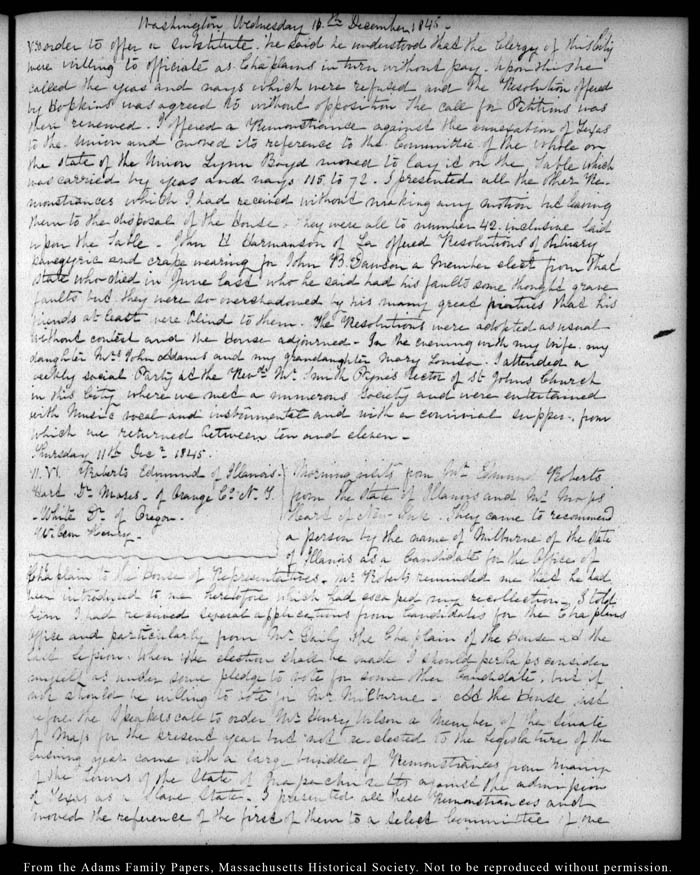 Washington, Wednesday 10th December 1845.
order to offer a substitute. he said he understood that the Clergy of this City
were willing to officiate as Chaplains in turn without pay. Upon this he
called the yeas and nays which were refused and the Resolution offered
by Hopkins was agreed to without opposition the call for Petitions was
then renewed. I offered a Remonstrance against the annexation of Texas
to the Union and moved its reference to the Committee of the whole on
the state of the Union Lynn Boyd moved to lay it on the Table which
was carried by yeas and nays 115 to 72. I presented all the other Re-
monstrances which I had received without making any motion but leaving
them to the disposal of the House. They were all to number 42 inclusive laid
upon the Table. John H Harmanson of La offered Resolutions of obituary
panegyric and crape wearing for John B. Dawson a Member elect from that
State who died in June last who he said had his faults some thought grave
faults but they were so overshadowed by his many great virtues that his
friends at least were blind to them. The Resolutions were adopted as usual
without contest and the House adjourned. In the evening with my wife my
daughter Mrs. John Adams and my grandaughter Mary Louisa. I attended a
weekly social Party at the Revd. Mr. Smith Pynes Rector of St Johns Church
in this City where we met a numerous Society and were entertained
with Music vocal and instrumental and with a convivial supper from
which we returned between ten and eleven.
Thursday 11th Decr. 1845.
Roberts Edmund of Illinois.
Dr. Mases. of Orange Co. N. Y.
White Dr. of Oregon.
Henry.
Morning visits from Mr. Edmund Roberts
from the State of Illinois and Mr. Moses
Heard of New York. They came to recommend
a person by the name of Milburne of the State
of Illinois as a Candidate for the Office of
Chaplain to the House of Representatives. Mr Roberts reminded me that he had
been introduced to me heretofore which had escaped my recollection. I told
him I had received several applications from Candidates for the Chaplains
office and particularly from Mr. Daily the Chaplain of the House at the
last Session. When the election shall be made I should perhaps consider
myself as under some pledge to vote for some other Candidate, but if
not should be willing to vote for Mr. Milburne. At the House just
before the Speakers call to order Mr. Henry Wilson a Member of the Senate
of Mass for the present year but not re-elected to the Legislature of the
ensuing year came with a large bundle of Remonstrances from many
of the Towns of the State of Massachusetts against the admission
of Texas as a Slave State. I presented all these Remonstrances and
moved the reference of the first of them to a select Committee of one
From the Adams Family Papers, Massachusetts Historical Society. Not to be reproduced without permission.